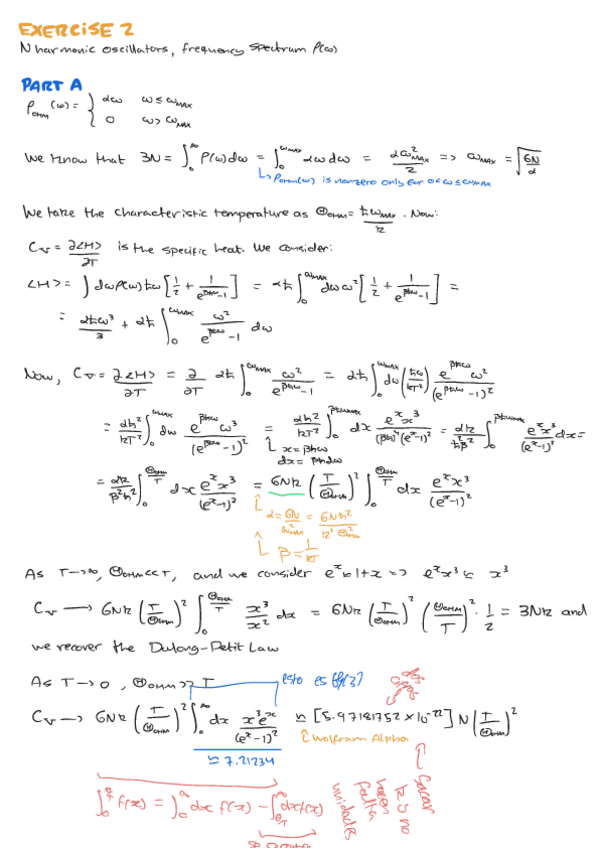 EXERCISE 2
N harmonic oscillators, frequency spectrum ρ(ω)
PART A
ρ_OHM(ω) = { αω ω ≤ ω_MAX
0 ω > ω_MAX
We know that 3N = ∫_0^∞ ρ(ω)dω = ∫_0^ω_MAX αω dω = αω²_MAX / 2 => ω_MAX = √(6N/α)
↳ ρ_OHM(ω) is nonzero only for 0<ω≤ω_MAX
We take the characteristic temperature as Θ_OHM = ħω_MAX / k . Now:
C_V = ∂<H>/∂T is the specific heat. We consider:
<H> = ∫ dω ρ(ω) ħω [1/2 + 1/(e^βħω - 1)] = αħ ∫_0^ω_MAX dω ω² [1/2 + 1/(e^βħω - 1)] =
= αħω³/3 + αħ ∫_0^ω_MAX ω²/(e^βħω - 1) dω
Now, C_V = ∂<H>/∂T = ∂/∂T αħ ∫_0^ω_MAX ω²/(e^βħω - 1) = αħ ∫_0^ω_MAX dω (ħω/kT²) e^βħω ω²/(e^βħω - 1)²
= αħ²/kT² ∫_0^ω_MAX dω e^βħω ω³/(e^βħω - 1)² = αħ²/kT² ∫_0^βħω_MAX dx e^x x³/(βħ)⁴(e^x - 1)² = αk/ħ²β² ∫_0^βħω_MAX e^x x³/(e^x - 1)² dx =
x = βħω
dx = βħdω
= αk/β²ħ² ∫_0^Θ_OHM/T dx e^x x³/(e^x - 1)² = 6Nk (T/Θ_OHM)² ∫_0^Θ_OHM/T dx e^x x³/(e^x - 1)²
α = 6N/ω²_MAX = 6Nħ²/k²Θ²_OHM
β = 1/kT
As T→∞, Θ_OHM << T, and we consider e^x ≈ 1+x => e^x x³ ≈ x³
C_V → 6Nk (T/Θ_OHM)² ∫_0^Θ_OHM/T x³/x² dx = 6Nk (T/Θ_OHM)² (Θ_OHM/T)² · 1/2 = 3Nk and
we recover the Dulong-Petit Law
As T→0, Θ_OHM >> T
esto es
C_V → 6Nk (T/Θ_OHM)² ∫_0^∞ dx x³e^x/(e^x - 1)² ≈ [5.97181752 × 10^-22] N (T/Θ_OHM)²
≈ 7.21234
Wolfram Alpha
sacar
k si no
hacen
falta
unidades
∫_0^a f(x) = ∫_0^∞ dx f(x) -